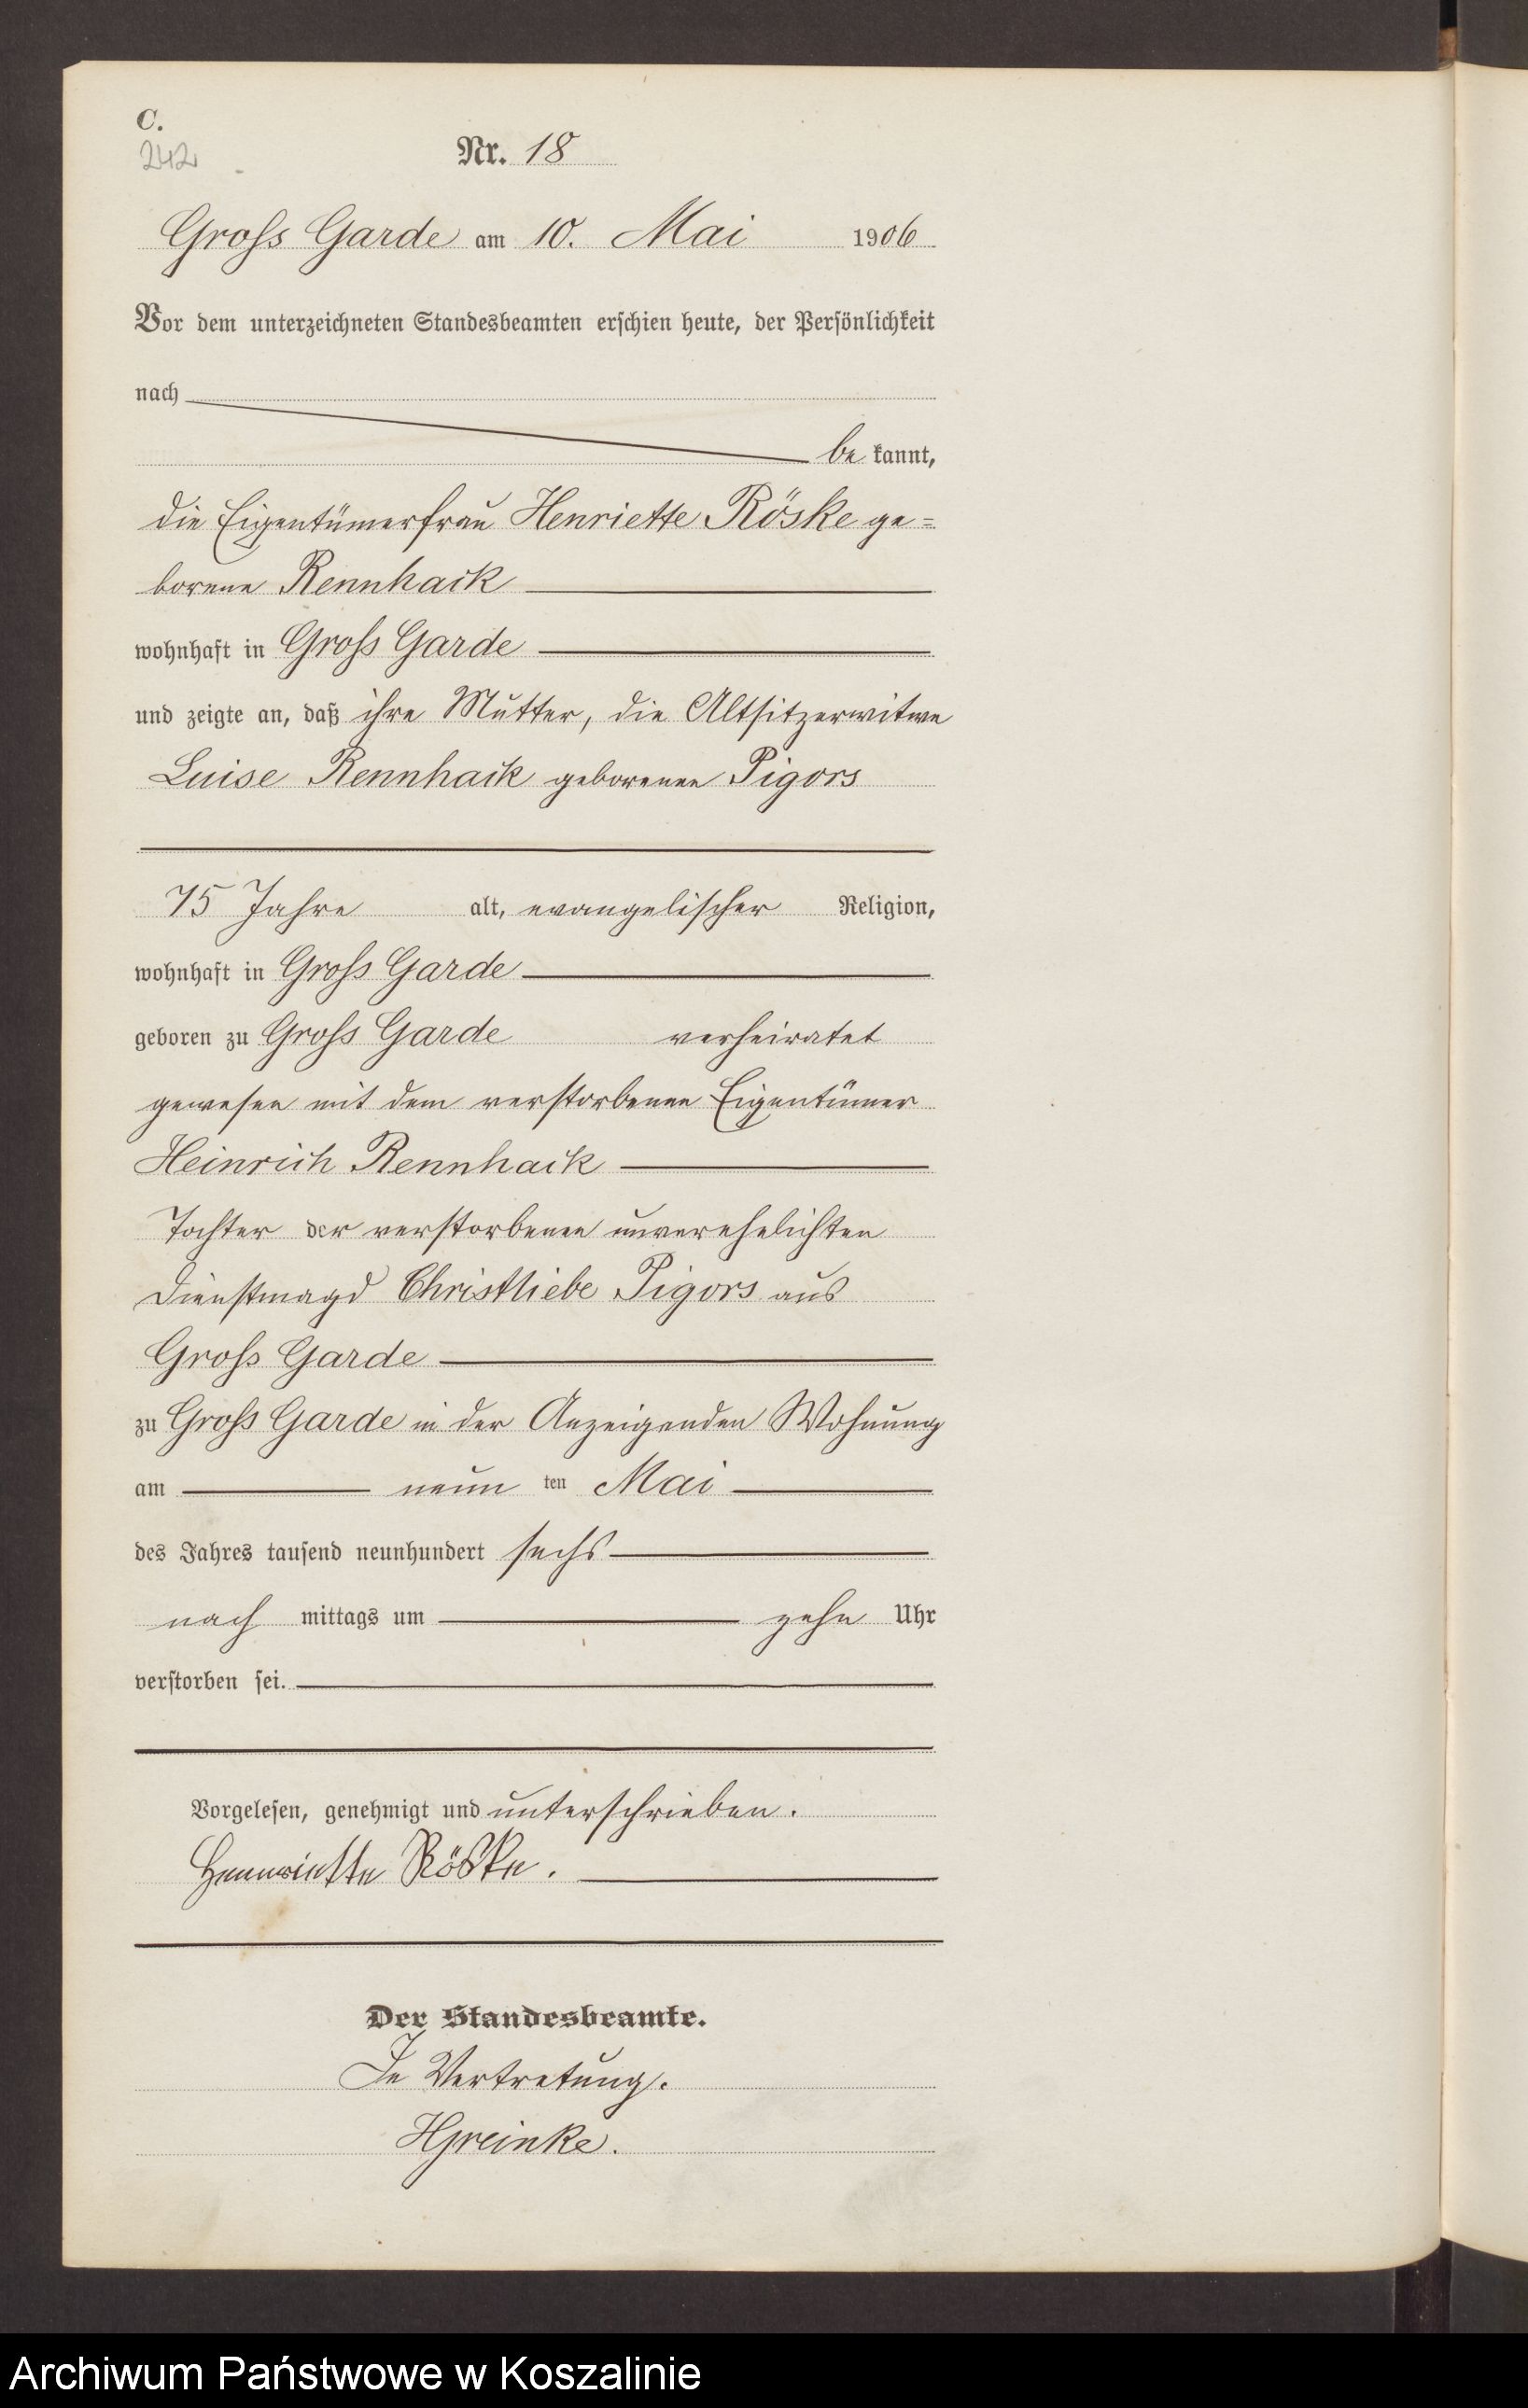 C.
242
Nr. 18
Gross Garde am 10. Mai 1906
Vor dem unterzeichneten Standesbeamten erschien heute, der Persönlichkeit
nach
be kannt,
die Eigentümerfrau Henriette Röske ge=
borene Rennhack
wohnhaft in Gross Garde
und zeigte an, daß ihre Mutter, die Altsitzerwitwe
Luise Rennhack geborenen Pigors
75 Jahre alt, evangelischer Religion,
wohnhaft in Gross Garde
geboren zu Gross Garde verheiratet
gewesen mit dem verstorbenen Eigentümer
Heinrich Rennhack
Tochter der verstorbenen unverehelichten
Dienstmagd Christliebe Pigors aus
Gross Garde
zu Gross Garde in der Anzeigenden Wohnung
am neun ten Mai
des Jahres tausend neunhundert sechs
nach mittags um zehn Uhr
verstorben sei.
Vorgelesen, genehmigt und unterschrieben.
Hennriette Röske.
Der Standesbeamte.
In Vertretung.
HGreinke.
Archiwum Państwowe w Koszalinie